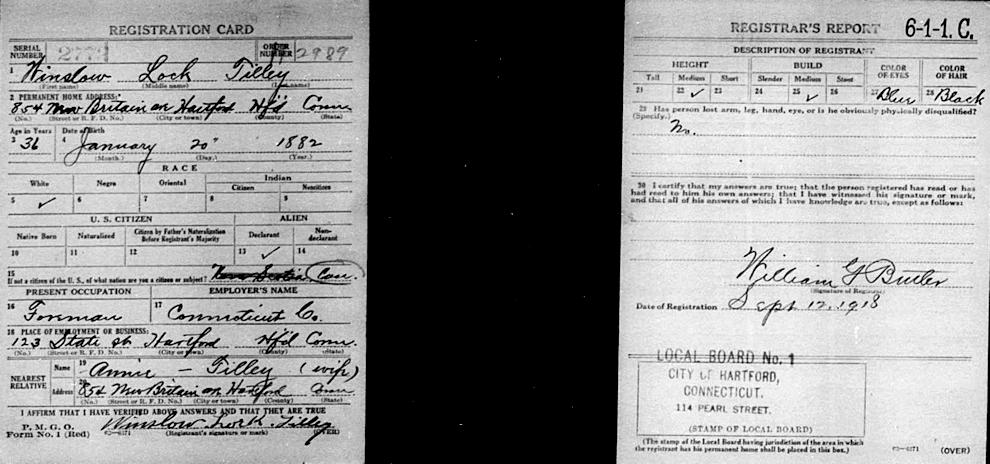 REGISTRATION CARD
SERIAL NUMBER 2773 ORDER NUMBER 2989
1 Winslow Lock Tilley
(First name) (Middle name) (Last name)
2 PERMANENT HOME ADDRESS:
854 New Britain av Hartford Htf'd Conn
(No.) (Street or R. F. D. No.) (City or town) (County) (State)
Age in Years Date of Birth
3 36 4 January 20 1882
(Month.) (Day.) (Year.)
RACE
White Negro Oriental Indian
Citizen Noncitizen
5 ✓ 6 7 8 9
U. S. CITIZEN ALIEN
Native Born Naturalized Citizen by Father's Naturalization Before Registrant's Majority Declarant Non-declarant
10 11 12 13 ✓ 14
15
If not a citizen of the U. S., of what nation are you a citizen or subject? Nova Scotia Can.
PRESENT OCCUPATION EMPLOYER'S NAME
16 Forman 17 Connecticut Co.
18 PLACE OF EMPLOYMENT OR BUSINESS:
123 State st Hartford Htf'd Conn.
(No.) (Street or R. F. D. No.) (City or town) (County) (State)
NEAREST RELATIVE Name 19 Annie - Tilley (wife)
Address 20 854 New Britain av Hartford Conn
(No.) (Street or R. F. D. No.) (City or town) (County) (State)
I AFFIRM THAT I HAVE VERIFIED ABOVE ANSWERS AND THAT THEY ARE TRUE
P. M. G. O.
Form No. 1 (Red) Winslow Lock Tilley
(Registrant's signature or mark) (OVER)
REGISTRAR'S REPORT 6-1-1. C.
DESCRIPTION OF REGISTRANT
HEIGHT BUILD COLOR OF EYES COLOR OF HAIR
Tall Medium Short Slender Medium Stout
21 22 ✓ 23 24 25 ✓ 26 27 Blue 28 Black
29 Has person lost arm, leg, hand, eye, or is he obviously physically disqualified?
(Specify.)
No.
30 I certify that my answers are true; that the person registered has read or has
had read to him his own answers; that I have witnessed his signature or mark,
and that all of his answers of which I have knowledge are true, except as follows:
William F Butler
(Signature of Registrar)
Date of Registration Sept 12, 1918
LOCAL BOARD No. 1
CITY OF HARTFORD,
CONNECTICUT.
114 PEARL STREET.
(STAMP OF LOCAL BOARD)
(The stamp of the Local Board having jurisdiction of the area in which
the registrant has his permanent home shall be placed in this box.)
(OVER)